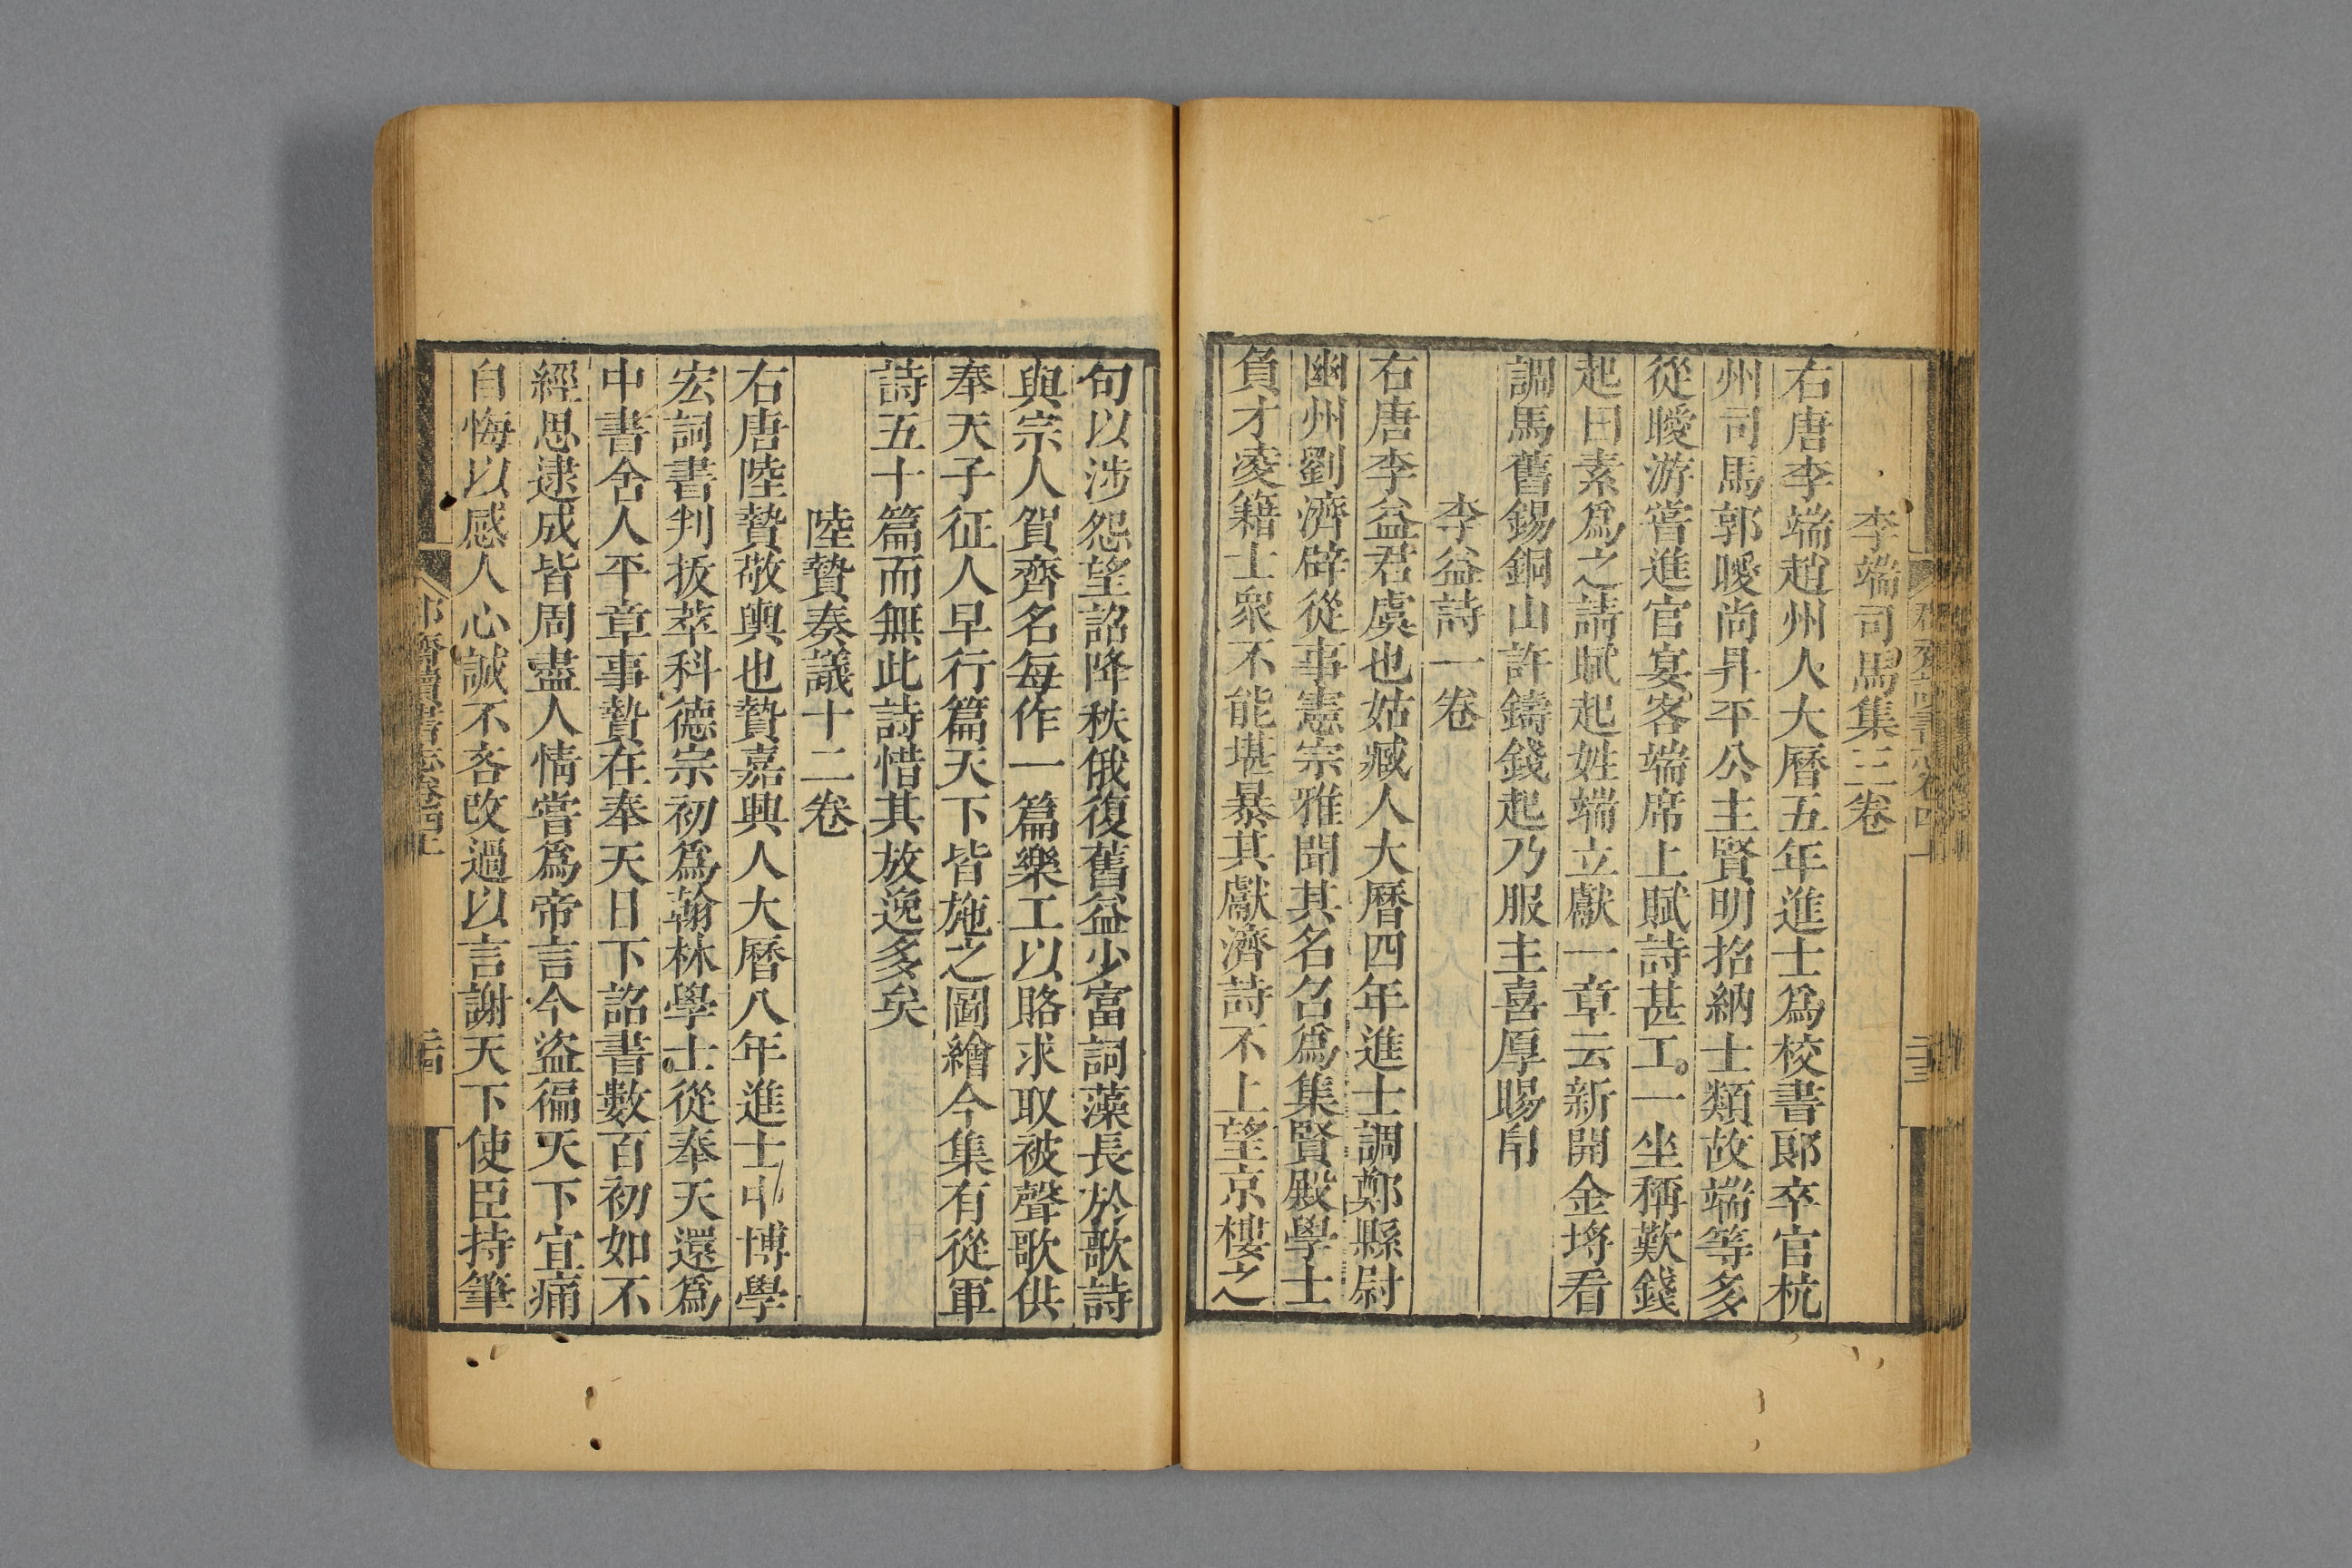 李端司馬集三卷
右唐李端趙州人大曆五年進士爲校書郞卒官杭
州司馬郭曖尚昇平公主賢明招納士類故端等多
從曖游嘗進官宴客端席上賦詩甚工一坐稱歎錢
起曰素爲之請賦起姓端立獻一章云新開金埒看
調馬舊錫銅山許鑄錢起乃服主喜厚賜帛
李益詩一卷
右唐李益君虞也姑臧人大曆四年進士調鄭縣尉
幽州劉濟辟從事憲宗雅聞其名召爲集賢殿學士
負才凌籍士衆不能堪暴其獻濟詩不上望京樓之
句以涉怨望詔降秩俄復舊益少富詞藻長於歌詩
與宗人賀齊名每作一篇樂工以賂求取被聲歌供
奉天子征人早行篇天下皆施之圖繪今集有從軍
詩五十篇而無此詩惜其放逸多矣
陸贄奏議十二卷
右唐陸贄敬輿也贄嘉興人大曆八年進士中博學
宏詞書判拔萃科德宗初爲翰林學士從奉天還爲
中書舍人平章事贄在奉天日下詔書數百初如不
經思逮成皆周盡人情嘗爲帝言今盜徧天下宜痛
自悔以感人心誠不吝改過以言謝天下使臣持筆